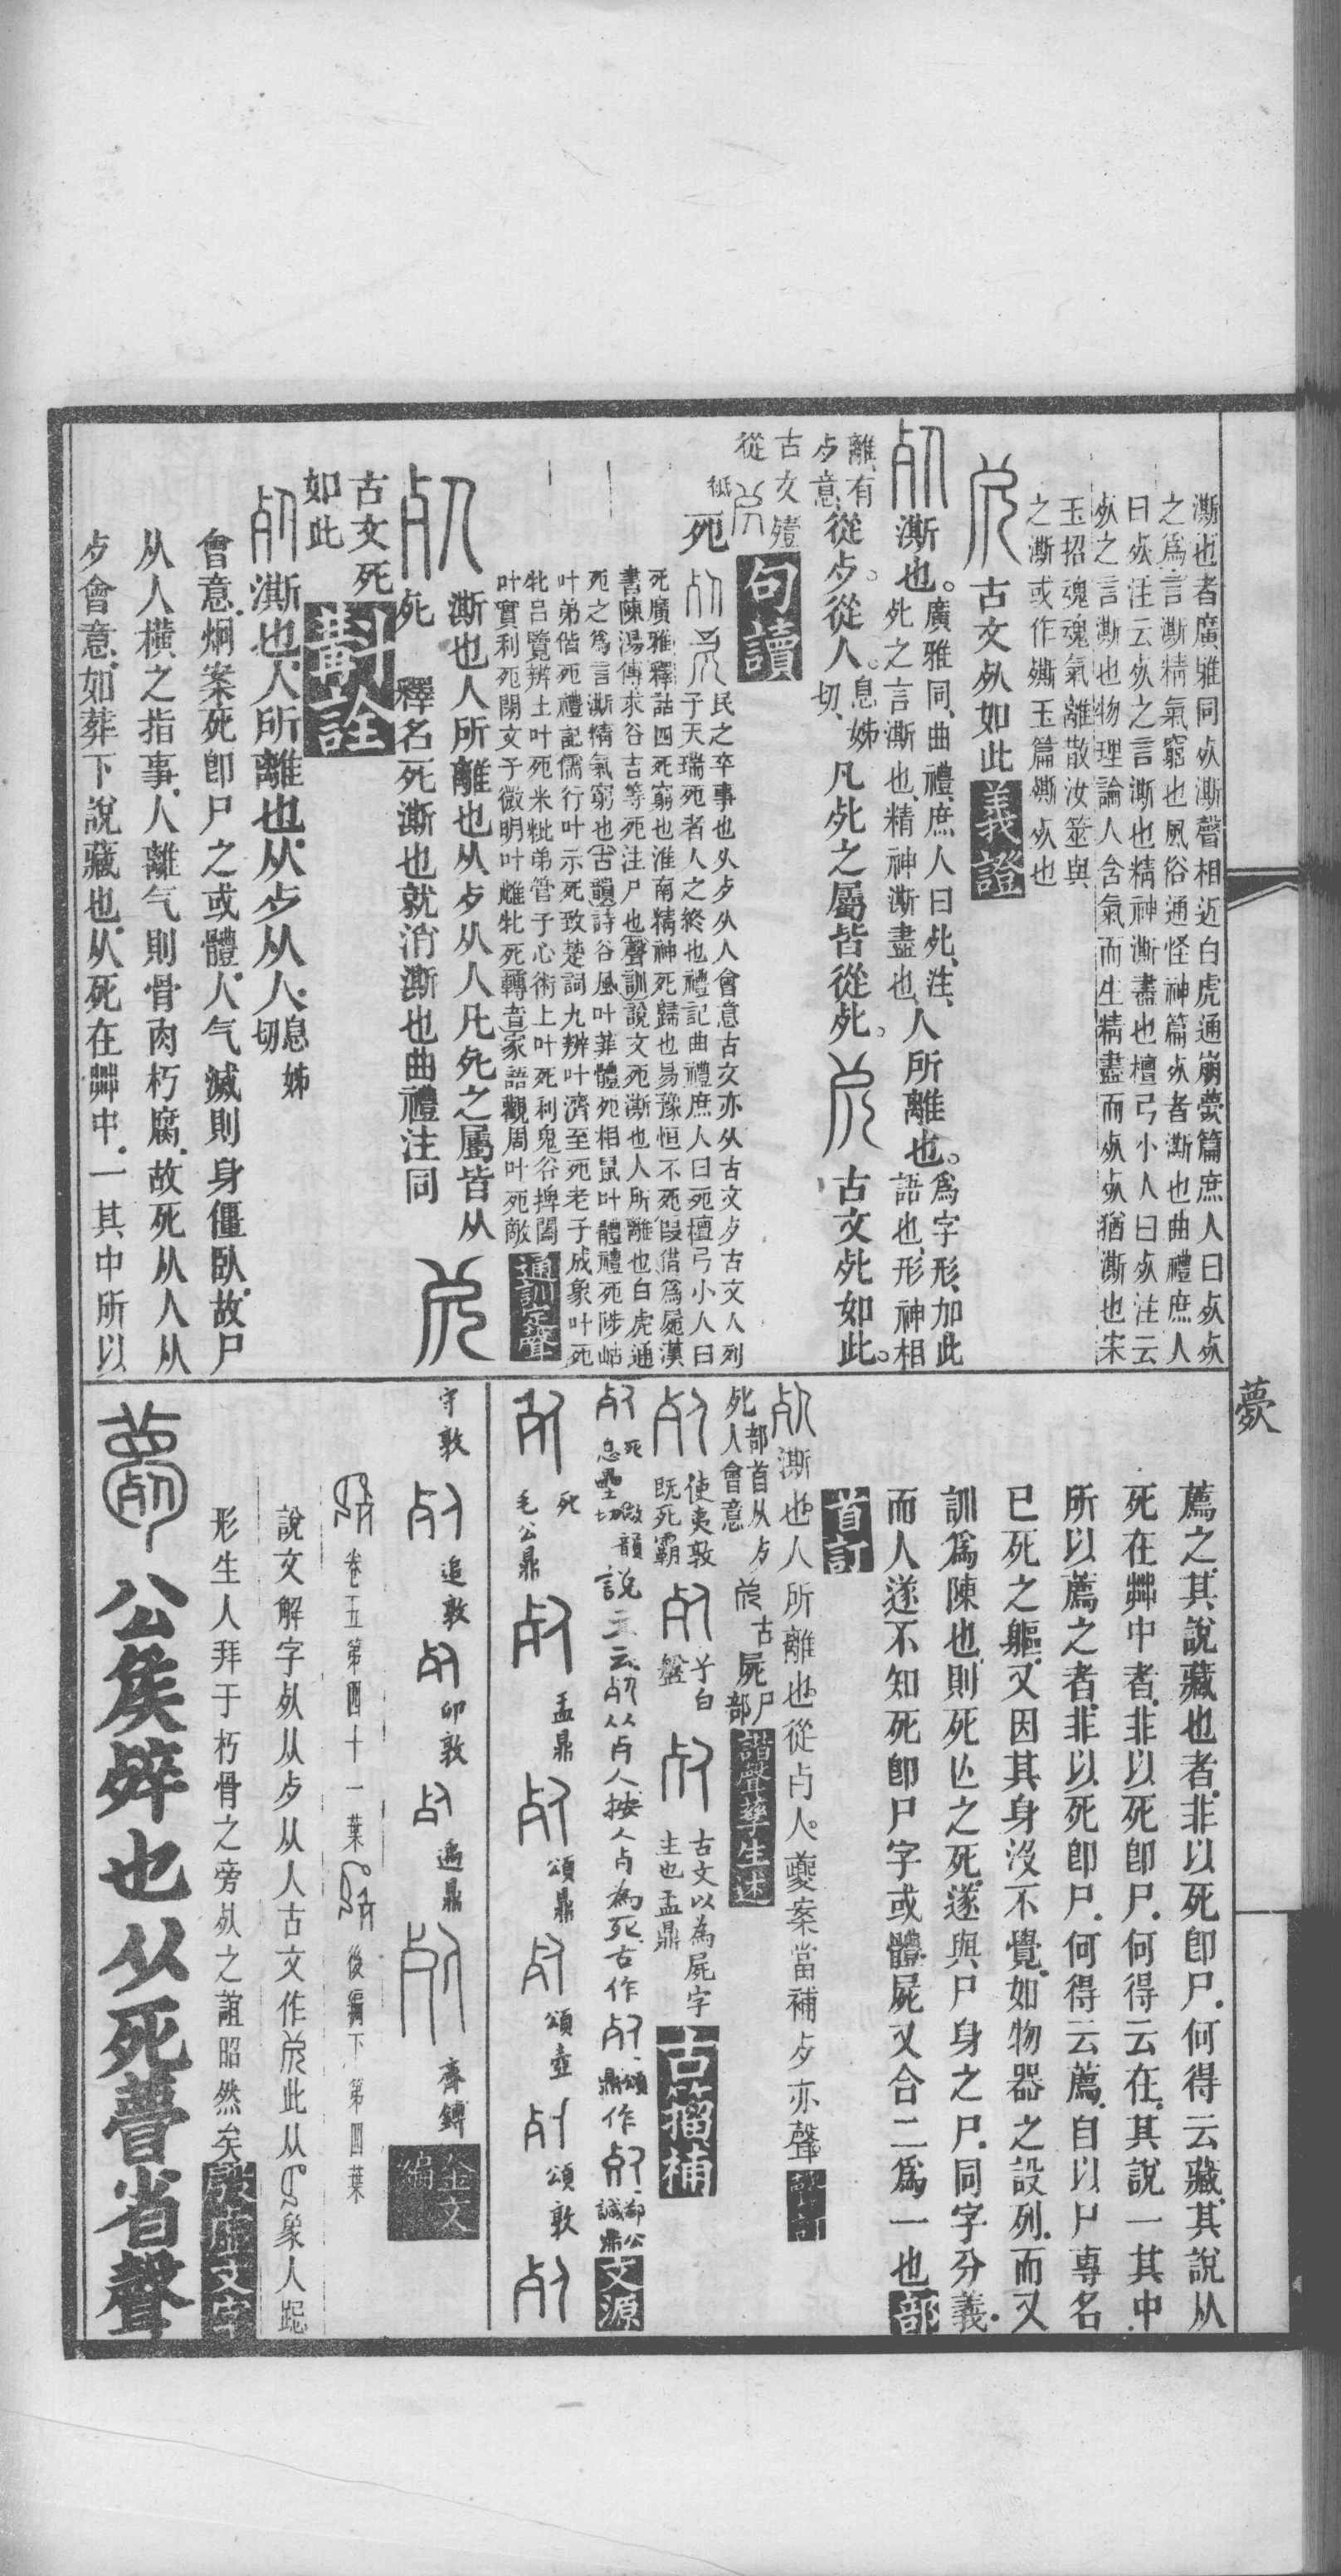 澌也者廣雅同𣦸澌聲相近白虎通崩薨篇庶人曰𣦸𣦸
之爲言澌精氣窮也風俗通怪神篇𣦸者澌也曲禮庶人
曰𣦸注云𣦸之言澌也精神澌盡也檀弓小人曰𣦸注云
𣦸之言澌也物理論人含氣而生精盡而𣦸𣦸猶澌也宋
玉招魂魂氣離散汝筮與
之澌或作㒋玉篇㒋𣦸也
古文𣦸如此義證
澌也。廣雅同、曲禮、庶人曰死、注、死之言澌也、精神澌盡也、人所離也。爲字形、加此語也、形神相
離、有歺意、從歺。從人。息姊切、凡死之屬皆從死。古文死如此。
古文殪從
句讀
死
民之卒事也从歺从人會意古文亦从古文歺古文人列
子天瑞死者人之終也禮記曲禮庶人曰死檀弓小人曰
死廣雅釋詁四死窮也淮南精神死歸也易豫恒不死叚借爲屍漢
書陳湯傳求谷吉等死注尸也聲訓說文死澌也人所離也白虎通
死之爲言澌精氣窮也古韻詩谷風叶菲體死相鼠叶體禮死陟岵
叶弟偕死禮記儒行叶示死致楚詞九辨叶濟至死老子成象叶死
牝呂覽辨土叶死米粃弟管子心術上叶死利鬼谷捭闔
叶實利死閉文子微明叶雌牝死轉音家語觀周叶死敵
通訓定聲
澌也人所離也从歺从人凡死之屬皆从
死 釋名死澌也就消澌也曲禮注同
古文死
如此斠詮
澌也人所離也从歺从人息姊切
會意炯案死卽尸之或體人气滅則身僵臥故尸
从人橫之指事人離气則骨肉朽腐故死从人从
歺會意如葬下說藏也从死在茻中一其中所以
薧
薦之其說藏也者非以死卽尸何得云藏其說从
死在茻中者非以死卽尸何得云在其說一其中
所以薦之者非以死卽尸何得云薦自以尸專名
已死之軀又因其身沒不覺如物器之設列而又
訓爲陳也則死亾之死遂與尸身之尸同字分義
而人遂不知死卽尸字或體屍又合二爲一也部
首訂
澌也人所離也從歺人夔案當補歺亦聲
死部首从歺人會意 古 屍尸部 諧聲孳生述
使夷敦既死霸 兮白盤 古文以為屍字主也盂鼎 古籀補
死 說文云从歺人按人歺為死古作 頌鼎作 文源
死 毛公鼎 盂鼎 頌鼎 頌壺 頌敦
追敦 卯敦 鼎 齊鎛 金文編
卷五第四十一葉 後編下第四葉
說文解字𣦸从歺从人古文作 此从 象人跽
形生人拜于朽骨之旁𣦸之誼昭然矣殷虛文字
公矦𣨛也从死瞢省聲